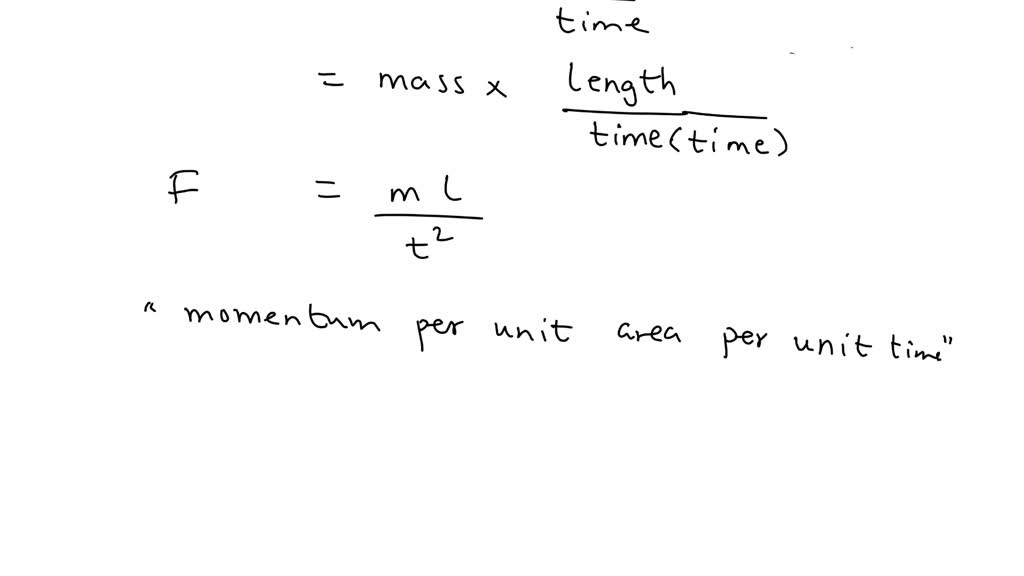 time
= mass x length
time(time)
F = m l
t²
" momentum per unit area per unit time"